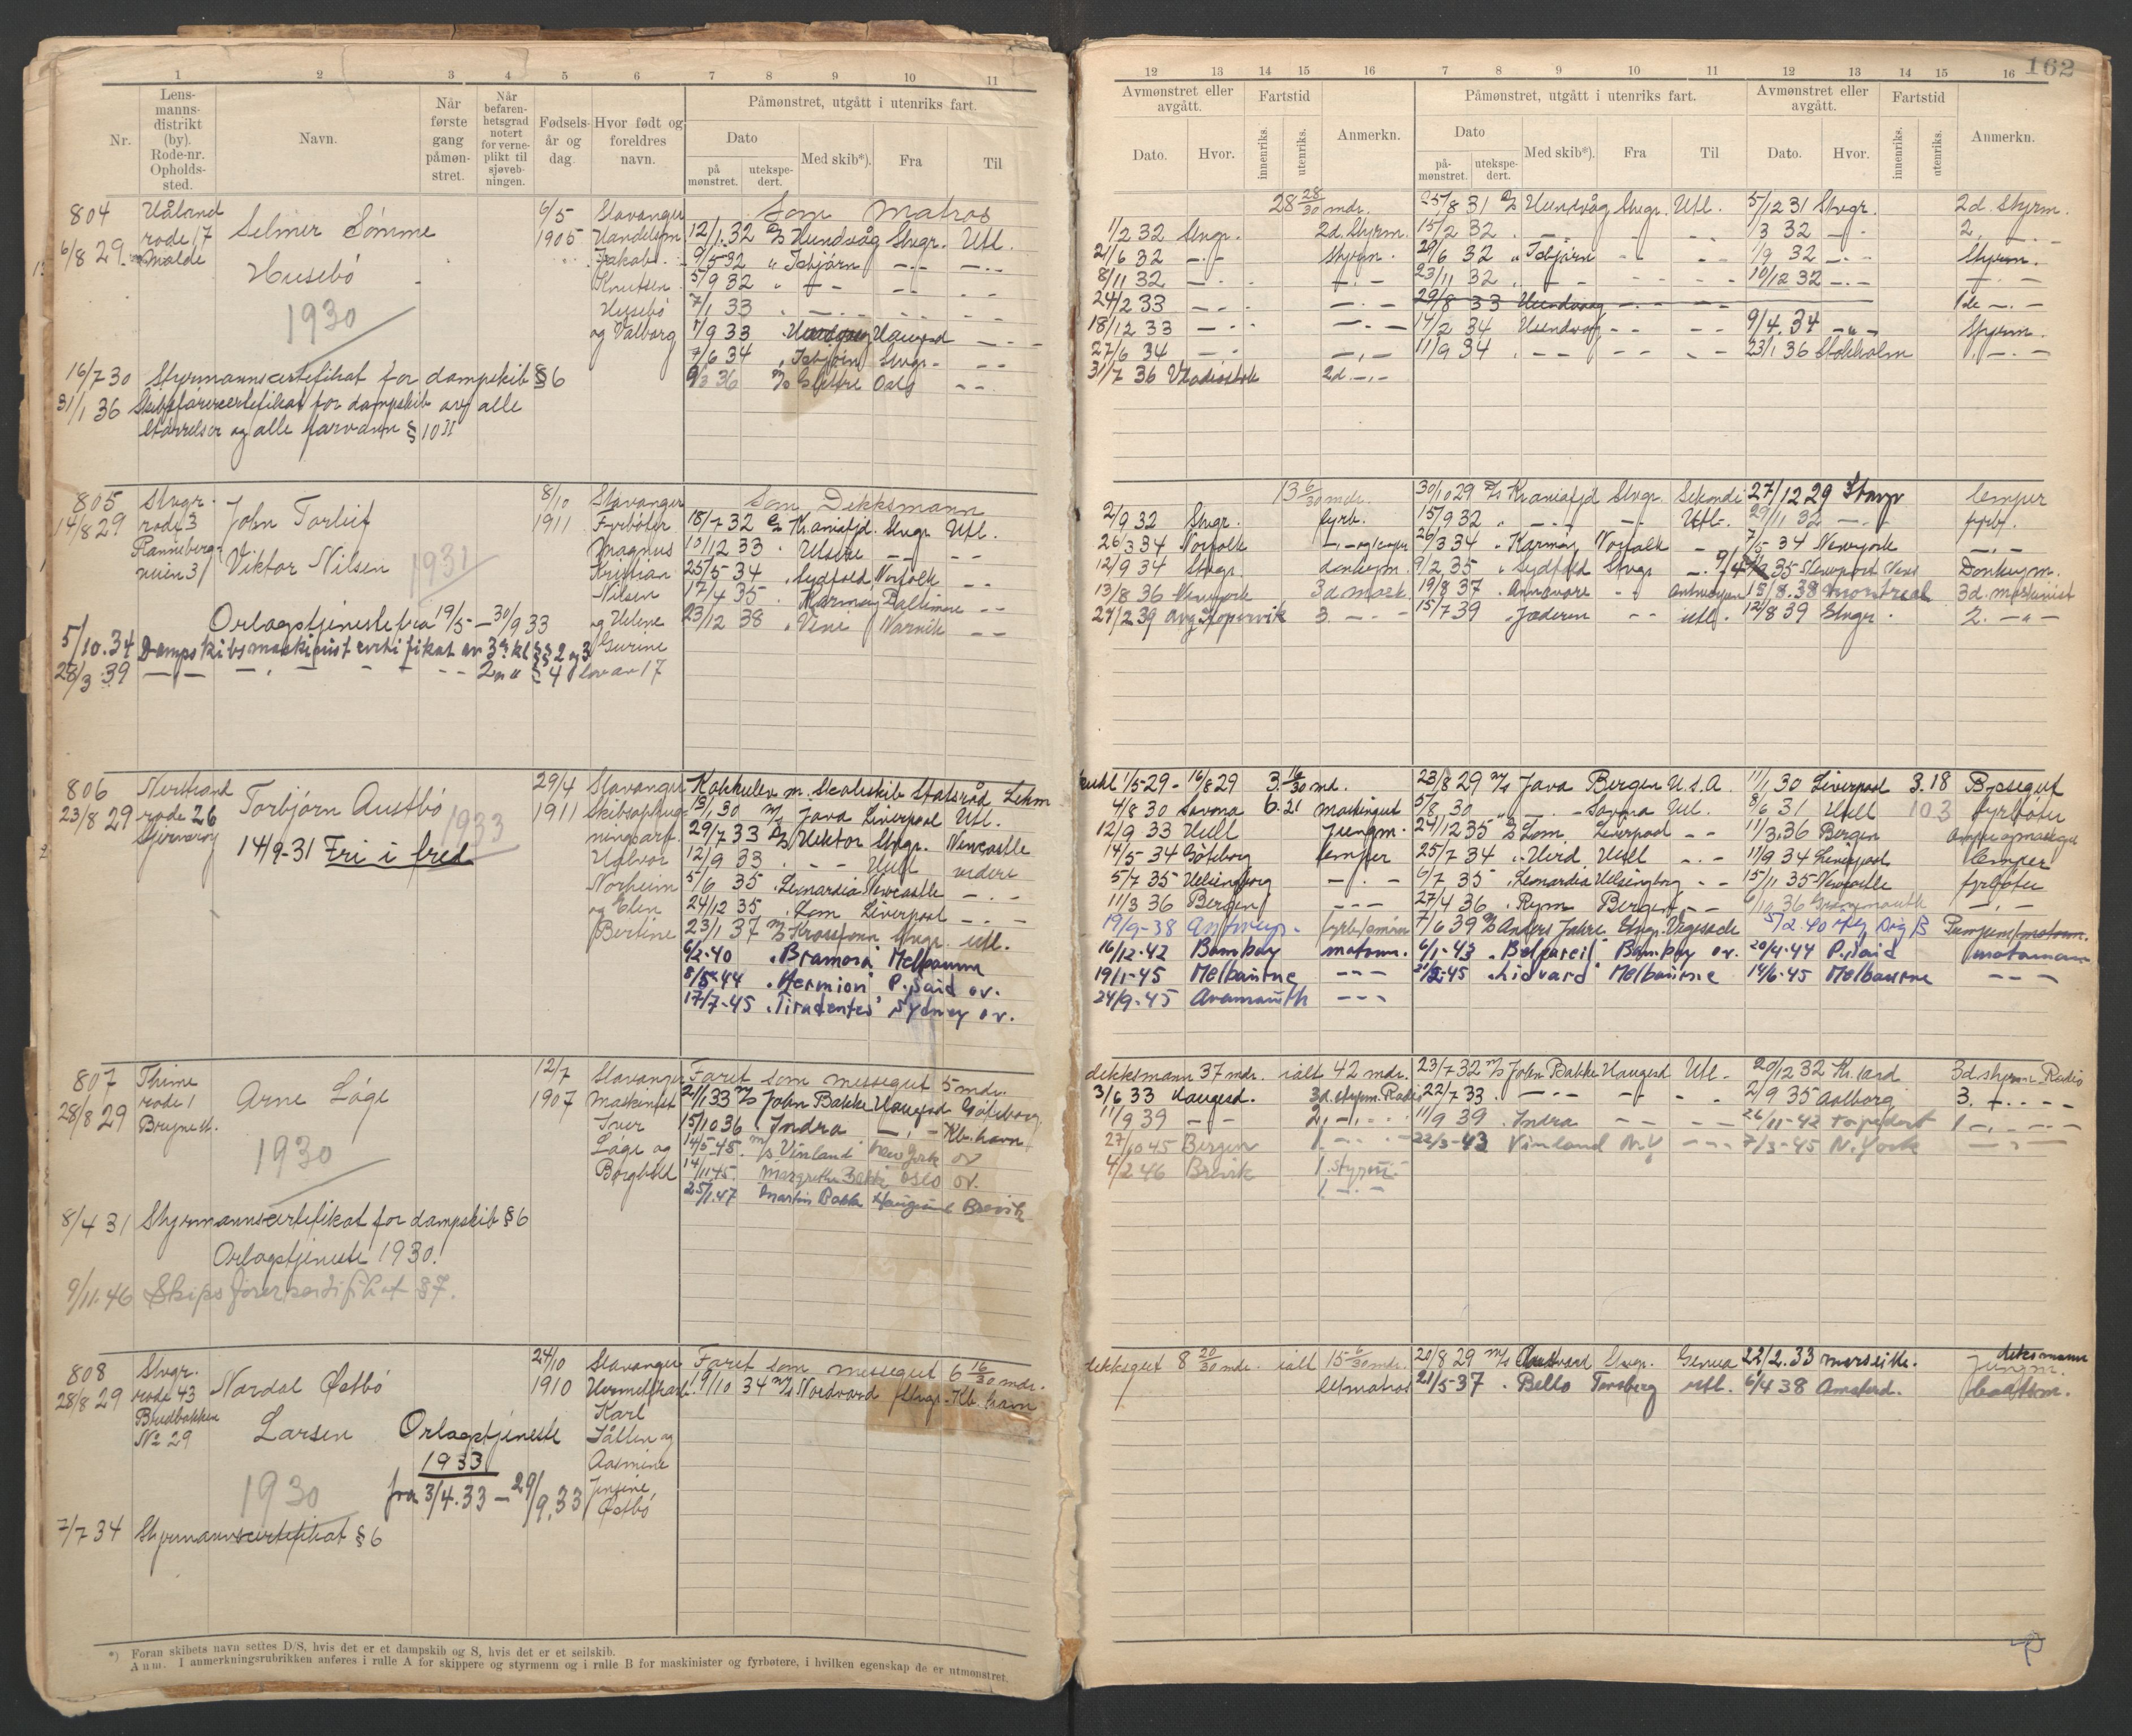 162
1 2 3 4 5 6 7 8 9 10 11
Nr.
Lens-
manns-
distrikt
(by).
Rode-nr.
Opholds-
sted.
Navn.
Når
første
gang
påmøn-
stret.
Når
befaren-
hetsgrad
notert
for verne-
plikt til
sjøveb-
ningen.
Fødsels-
år og
dag.
Hvor født og
foreldres
navn.
Påmønstret, utgått i utenriks fart.
Dato
på
mønstret.
utekspe-
dert.
Med skib*).
Fra
Til
12 13 14 15 16 7 8 9 10 11 12 13 14 15 16
Avmønstret eller
avgått.
Dato.
Hvor.
Fartstid
innenriks.
utenriks.
Anmerkn.
Påmønstret, utgått i utenriks fart.
Dato
på-
mønstret.
utekspe-
dert.
Med skib*).
Fra
Til
Avmønstret eller
avgått.
Dato.
Hvor.
Fartstid
innenriks.
utenriks.
Anmerkn.
804
6/8 29
Håland
rode 17
Molde
Selmer Sømme
Husebø
1930
6/5
1905
Stavanger
Handelsm
Jakob
Knutsen
Husebø
og Valborg
Som Matros
12/1 32 Hundvåg Stvgr. Utl.
9/5 32 " Isbjørn
5/9 32
7/1 33
7/9 33 Haugesd
7/6 34 Isbjørn Stvgr.
36 Oslo
16/7 30 Styrmannscertifikat for dampskib § 6
31/1 36 Skibsførercertifikat for dampskib av alle
størrelser og alle farvann § 10 II
28 28/30 mdr. 25/8 31 D/S Hundvåg Stvgr. Utl. 5/12 31 Stvgr. 2d. Styrm.
1/2 32 Stvgr. 2d. Styrm. 15/2 32 1/3 32 2.
21/6 32 Styrm. 29/6 32 " Isbjørn 1/9 32 Styrm.
8/11 32 23/11 32 10/12 32
24/2 33 29/8 33 Hundvåg 1ste
18/12 33 14/2 34 Hundvåg 9/4 34 Styrm.
27/6 34 11/9 34 23/1 36 Stokholm
31/7 36 Vladivostok 2d.
805
14/8 29
Stvgr.
rode 3
John Torleif
Viktor Nilsen
1931
8/10
1911
Stavanger
Fyrbøter
Magnus
Kristian
Nilsen
og Helene
Gurine
Som Dekksmann
18/7 32 D/S Kr.aniafjd. Stvgr. Utl.
10/12 33 Utsire
25/5 34 Sydfold Norfolk
17/4 35 Karmøy Baltimore
23/12 38 Vene Narvik
Orlogstjeneste fra 19/5 – 30/9 33
5/10.34 Dampskibsmaskinistcertifikat av 3dje kl §§ 2 og 3
28/3 39 2nn " § 4 lov av 17
13 6/30 mdr. 30/10 29 D/S Kraniafjd Stvgr. Sekondi 27/12 29 Stavgr lemper
2/9 32 Stvgr. fyrb. 15/9 32 Utl. 29/11 32 fyrb.
26/3 34 Norfolk 26/3 34 Karmøy Norfolk 7/5 34 Newyork
12/9 34 Stvgr. donkeym. 9/2 35 Sydfold Stvgr 35 Donkeym.
13/8 36 Newyork 3d mask. 19/8 37 Annavore Antwerpen 15/8.38 Montreal 3d. maskinist
27/2 39 avg Kopervik 3. 15/7 39 Jæderen utl. 12/8 39 Stvgr. 2.
806
23/8 29
Nerstrand
rode 26
Torbjørn Austbø
1933
14/9-31 Fri i fred
29/4
1911
Stavanger
Halvor
Norheim
og Elen
Bertine
Kokkelev m. Skoleskib Statsråd Lehm
13/1 30 M/S Java Liverpool Utl.
29/7 33 D/S Hektor Stvgr. Newcastle
12/9 33 Hull videre
5/6 35 Leonardia Newcastle
24/12 35 Lom Liverpool
23/1 37 M/S Krossfonn Stvgr. utl.
6/2-40 "Bramora" Melbourne
8/5-44 "Hermion" P. Said ov.
17/7-45 "Tiradentes" Sydney ov.
1/5-29 – 16/8 29 3 16/30 md. 23/8 29 M/S Java Bergen U.S.A 11/1 30 Liverpool 3.18 Byssegut
4/8 30 Savona 6.21 Maskingut 5/8 30 Savona Utl. 8/6 31 Hull 10 3 fyrbøter
12/9 33 Hull Jungm. 24/12 35 D/S Lom Liverpool 11/3 36 Bergen
14/5-34 Göteborg lemper 25/7 34 Hird Hull 11/9 34 Liverpool lemper
5/7 35 Helsingborg 6/7 35 Leonardia Helsingborg 15/11 35 Newcastle fyrbøter
11/3 36 Bergen 27/4 36 Rym Bergen
19/9-38 Antwerp. 7/6 39 Anders Jahre Stvgr. Vegesack 5/2.40
16/12-42 Bombay motorm. 6/1-43 "Belpareil" Bombay ov. 20/4-44 P. Said motormann
19/1-45 Melbourne 21/2-45 "Lidvard" Melbourne 14/6-45 Melbourne
24/9-45 Avonmouth
807
28/8 29
Thime
rode 1
Bryne st.
Arne Löge
1930
12/7
1907
Stavanger
Maskinist
Iver
Löge og
Borghild
Faret som messegut 5 mdr.
21/1 33 M/S John Bakke Haugesd Göteborg
15/10 36 Indra Kb.havn
14/5-45 M/S Vinland New York ov
14/11 45 Margrethe Bakke Oslo ov.
25/1.47 Martin Bakke Haugesund Brevik
8/4 31 Styrmannscertifikat for dampskib § 6
Orlogstjeneste 1930.
9/11.46 Skipsførersertifikat § 7.
dekksmann 37 mdr. ialt 42 mdr. 23/7 32 M/S John Bakke Haugesd Utl. 20/12 32 Kr.sand 3d styrm. Radio
3/6 33 Haugesd. 3d. styrm. Radio 22/7 33 2/9 35 Aalborg 3.
11/9 39 2. 11/9 39 Indra 26/11-42 Torpedert 1
27/10 45 Bergen 1. 22/3-43 Vinland N.Y 7/3-45 N.York
4/2 46 Brevik 1. styrm.
808
28/8 29
Stvgr.
rode 43
Bredbakken
No 29
Nordal Østbø
Larsen
1930
24/10
1910
Stavanger
Hermetikarb.
Karl
Aasmine
Jensine
Østbø
Faret som messegut 6 16/30 mdr.
19/10 34 M/S Nordvard Stvgr. Kb.havn
Orlogstjeneste
1933
fra 3/4.33 – 29/9.33
7/7 34 Styrmannscertifikat § 6
dekksgut 8 20/30 mdr. ialt 15 6/30 mdr. 20/8 29 M/S Stvgr. Genua 22/2.33 dekksmann
Jungm.
letmatros 21/5-37 Bello Tønsberg utl. 6/4 38 Amsterd. baatsm.
*) Foran skibets navn settes D/S, hvis det er et dampskib og S, hvis det er et seilskib.
Anm. I anmerkningsrubrikken anføres i rulle A for skippere og styrmenn og i rulle B for maskinister og fyrbøtere, i hvilken egenskap de er utmønstret.